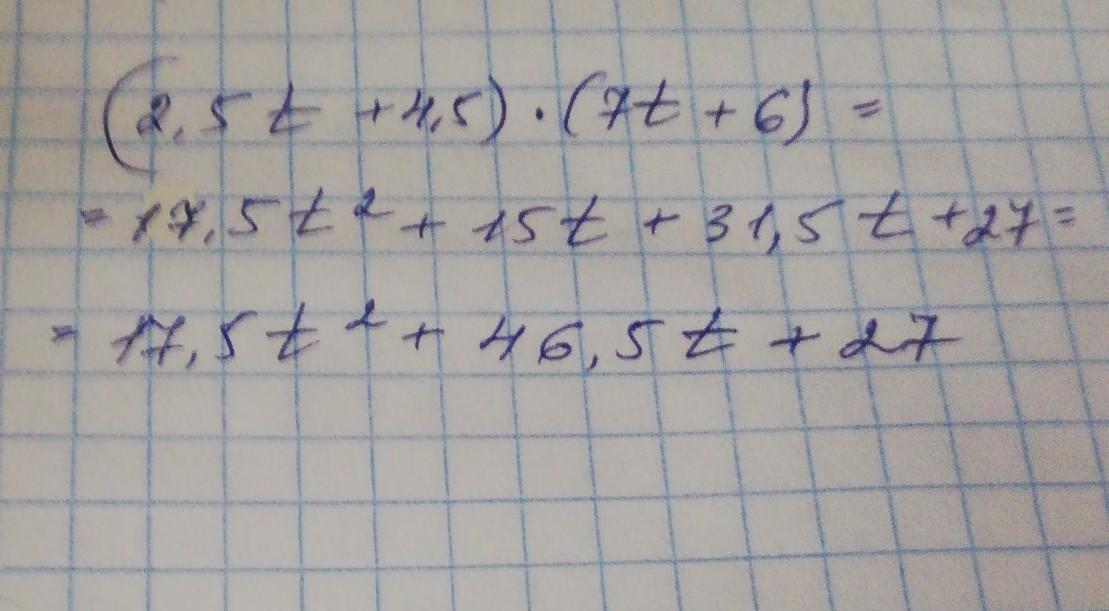 (2,5t + 4,5) · (7t + 6) =
= 17,5t² + 15t + 31,5t + 27 =
= 17,5t² + 46,5t + 27